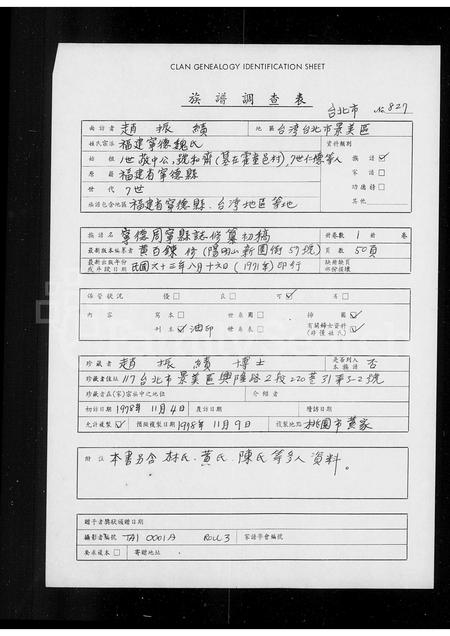 CLAN GENEALOGY IDENTIFICATION SHEET
族譜調查表
台北市 No 827
面訪者 趙振績 地區 台湾台北市景美區
姓氏宗派 福建寧德魏氏 資料類别
始祖 1世敬中公,號和齊(墓在霍童邑村),7世仁標等人 族譜 ☑
原籍 福建省寧德縣 家譜 □
世代 7世 功德榜 □
族譜包含地區 福建省寧德縣、台湾地區等地 其他
族譜名 寧德周寧縣誌修纂初稿 冊卷數 1 冊 卷
最新版本編纂者 黃百鍊 修(陽明山新園街57號) 頁數 50頁
最新出版年份或年段日期 民國六十三年八月十六日(1971年)印行 缺漏頁或損壞
保管狀況 優 □ 良 □ 可 ☑ 劣 □
內容 寫本 □ 世系圖 □ 掃圖 ☑
刊本 ☑ 油印 世系表 □ 有關婦女資料(非僅姓氏) ☑
珍藏者 趙振績博士 是否列入本族譜 否
珍藏者住址 117台北市景美區興隆路2段220巷31弄3-2號
珍藏者在(家)宗族中之地位 介紹者
初訪日期 1978年 11月4日 複訪日期 續訪日期
允許複製 ☑ 預擬複製日期 1978年 11月9日 複製地點 桃園市黃家
附註 本書另含林氏、黃氏、陳氏等多人資料。
贈予者獎狀頒贈日期
攝影者編號 TAI 0001A ROLL 3 家譜學會編號
要求複本 □ 寄贈地址